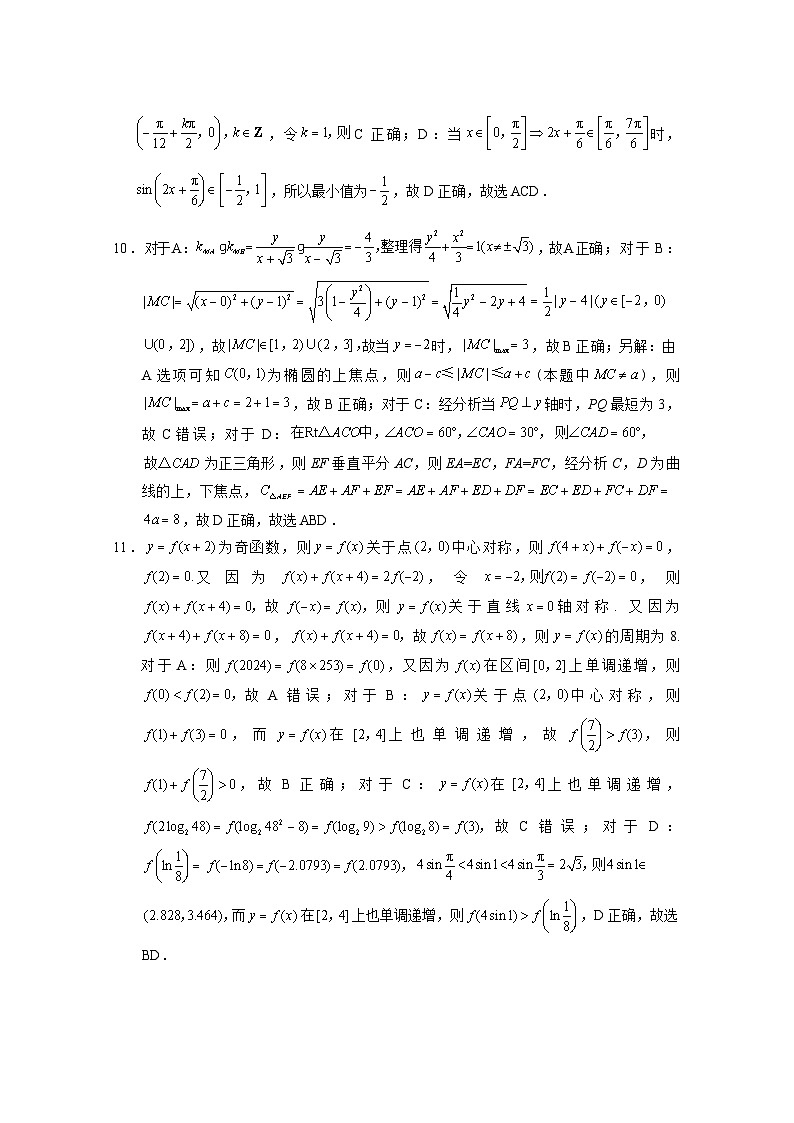 (−π/12+kπ/2, 0), k∈Z ，令k=1,则C 正确；D：当x∈[0, π/2]⇒2x+π/6∈[π/6, 7π/6]时，
sin(2x+π/6)∈[−1/2, 1]，所以最小值为−1/2，故 D 正确，故选 ACD．
10．对于A：k_MA gk_MB=y/(x+√3) g y/(x−√3)=−4/3,整理得y²/4+x²/3=1(x≠±√3)，故A正确；对于 B：
|MC|=√((x−0)²+(y−1)²)=√(3(1−y²/4)+(y−1)²)=√(1/4y²−2y+4)=1/2|y−4|(y∈[−2,0)
∪(0,2])，故|MC|∈[1,2)∪(2,3],故当y=−2时，|MC|max=3，故 B 正确；另解：由
A 选项可知C(0,1)为椭圆的上焦点，则a−c≤|MC|≤a+c (本题中MC≠a)，则
|MC|max=a+c=2+1=3，故 B 正确；对于 C：经分析当PQ⊥y轴时，PQ 最短为 3，
故 C 错误；对于 D：在Rt△ACO中,∠ACO=60°,∠CAO=30°, 则∠CAD=60°,
故△CAD 为正三角形，则 EF 垂直平分 AC，则 EA=EC，FA=FC，经分析 C，D 为曲
线的上，下焦点，C△AEF=AE+AF+EF=AE+AF+ED+DF=EC+ED+FC+DF=
4a=8，故 D 正确，故选 ABD．
11．y=f(x+2)为奇函数，则y=f(x)关于点(2,0)中心对称，则 f(4+x)+f(−x)=0，
f(2)=0.又因为 f(x)+f(x+4)=2f(−2)，令 x=−2,则f(2)=f(−2)=0，则
f(x)+f(x+4)=0, 故 f(−x)=f(x), 则 y=f(x)关于直线x=0轴对称．又因为
f(x+4)+f(x+8)=0，f(x)+f(x+4)=0, 故f(x)=f(x+8)，则y=f(x)的周期为 8.
对于 A：则 f(2024)=f(8×253)=f(0)，又因为 f(x)在区间[0,2]上单调递增，则
f(0)<f(2)=0, 故 A 错误；对于 B：y=f(x)关于点(2,0)中心对称，则
f(1)+f(3)=0，而 y=f(x)在 [2,4]上也单调递增，故 f(7/2)>f(3)，则
f(1)+f(7/2)>0，故 B 正确；对于 C：y=f(x)在 [2,4]上也单调递增，
f(2log₂48)=f(log₂48²−8)=f(log₂9)>f(log₂8)=f(3), 故 C 错误；对于 D：
f(ln1/8)=f(−ln8)=f(−2.0793)=f(2.0793)，4sinπ/4<4sin1<4sinπ/3=2√3,则4sin1∈
(2.828,3.464),而y=f(x)在[2,4]上也单调递增，则 f(4sin1)>f(ln1/8)，D 正确，故选
BD．